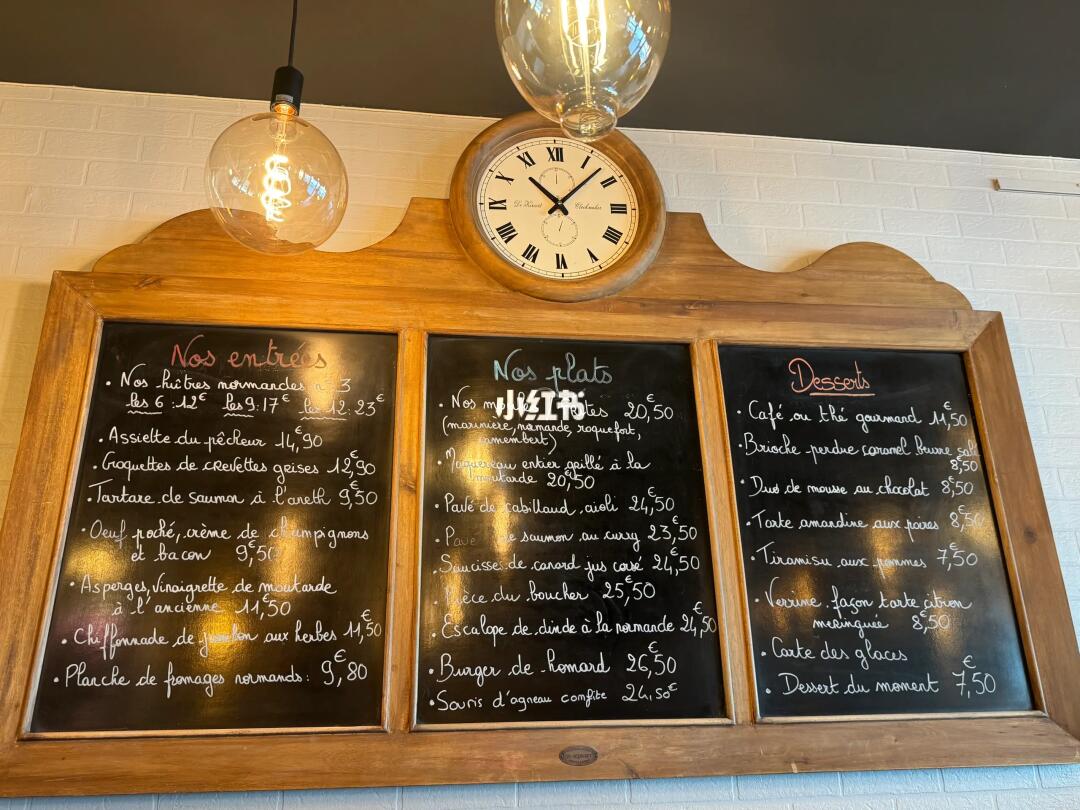 XII I II III IIII V VI VII VIII IX X XI
Nos entrées
• Nos huîtres normandes n° 3
les 6 : 12€ les 9 : 17€ les 12 : 23€
• Assiette du pêcheur 14€,90
• Croquettes de crevettes grises 12€,90
• Tartare de saumon à l'aneth 9€,50
• Oeuf poché, crème de champignons
et bacon 9€,50
• Asperges, vinaigrette de moutarde
à l'ancienne 11€,50
• Chiffonnade de jambon aux herbes 11€,50
• Planche de fromages normands : 9€,80
Nos plats
• Nos 20€,50
小红书
(marinière, normande, roquefort,
camembert)
• Maquereau entier grillé à la
moutarde 20€,50
• Pavé de cabillaud, aioli 24€,50
• Pavé de saumon au curry 23€,50
• Saucisse de canard jus corsé 24€,50
• Pièce du boucher 25€,50
• Escalope de dinde à la normande 24€,50
• Burger de homard 26€,50
• Souris d'agneau confite 24,50€
Desserts
• Café ou thé gourmand 11€,50
• Brioche perdue caramel beurre salé
8€,50
• Duo de mousse au chocolat 8€,50
• Tarte amandine aux poires 8€,50
• Tiramisu aux pommes 7€,50
• Verrine façon tarte citron
meringuée 8€,50
• Carte des glaces
• Dessert du moment 7€,50